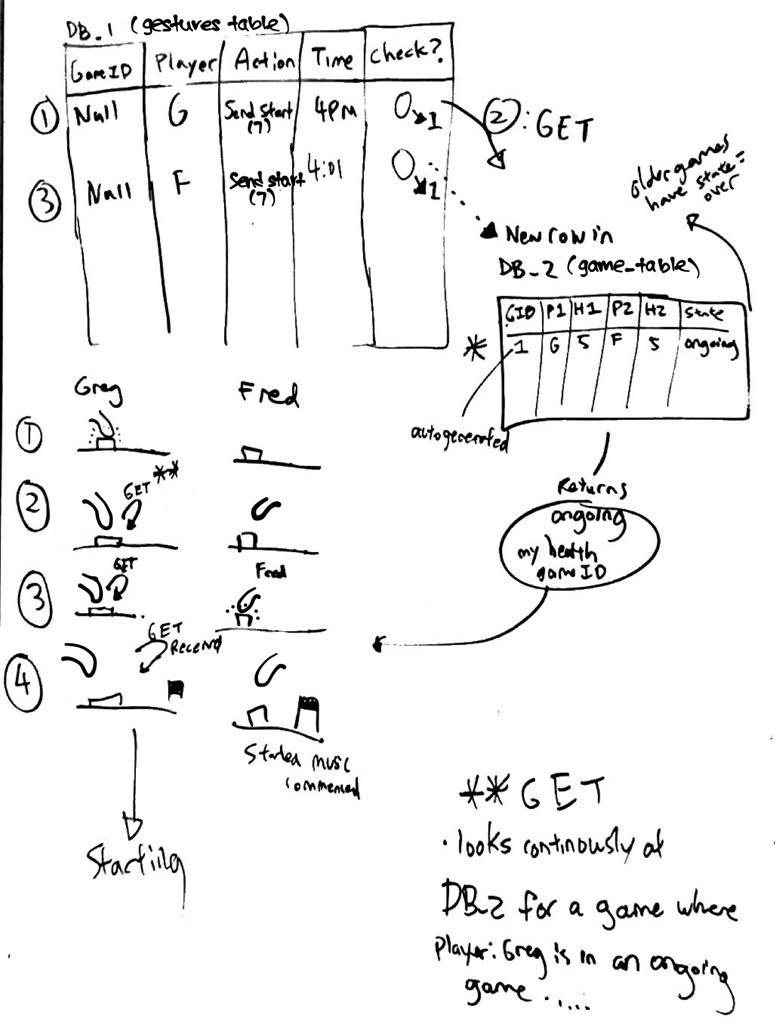 DB_1 (gestures table)
GameID Player Action Time Check?
① Null G Send start (7) 4PM 0 1
②: GET
③ Null F Send start (7) 4:01 0 1
older games
have state =
over
New row in
DB_2 (game_table)
GID P1 H1 P2 H2 State
* 1 G 5 F 5 ongoing
autogenerated
Returns
ongoing
my health
gameID
Greg Fred
①
② GET **
③ GET Fred
④ GET
Started music
commenced
** GET
• looks continously at
DB_2 for a game where
Player: Greg is in an ongoing
game .....